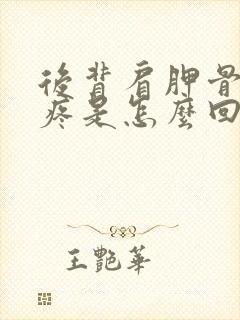 後背肩胛骨
疼是怎麼回
王艷華